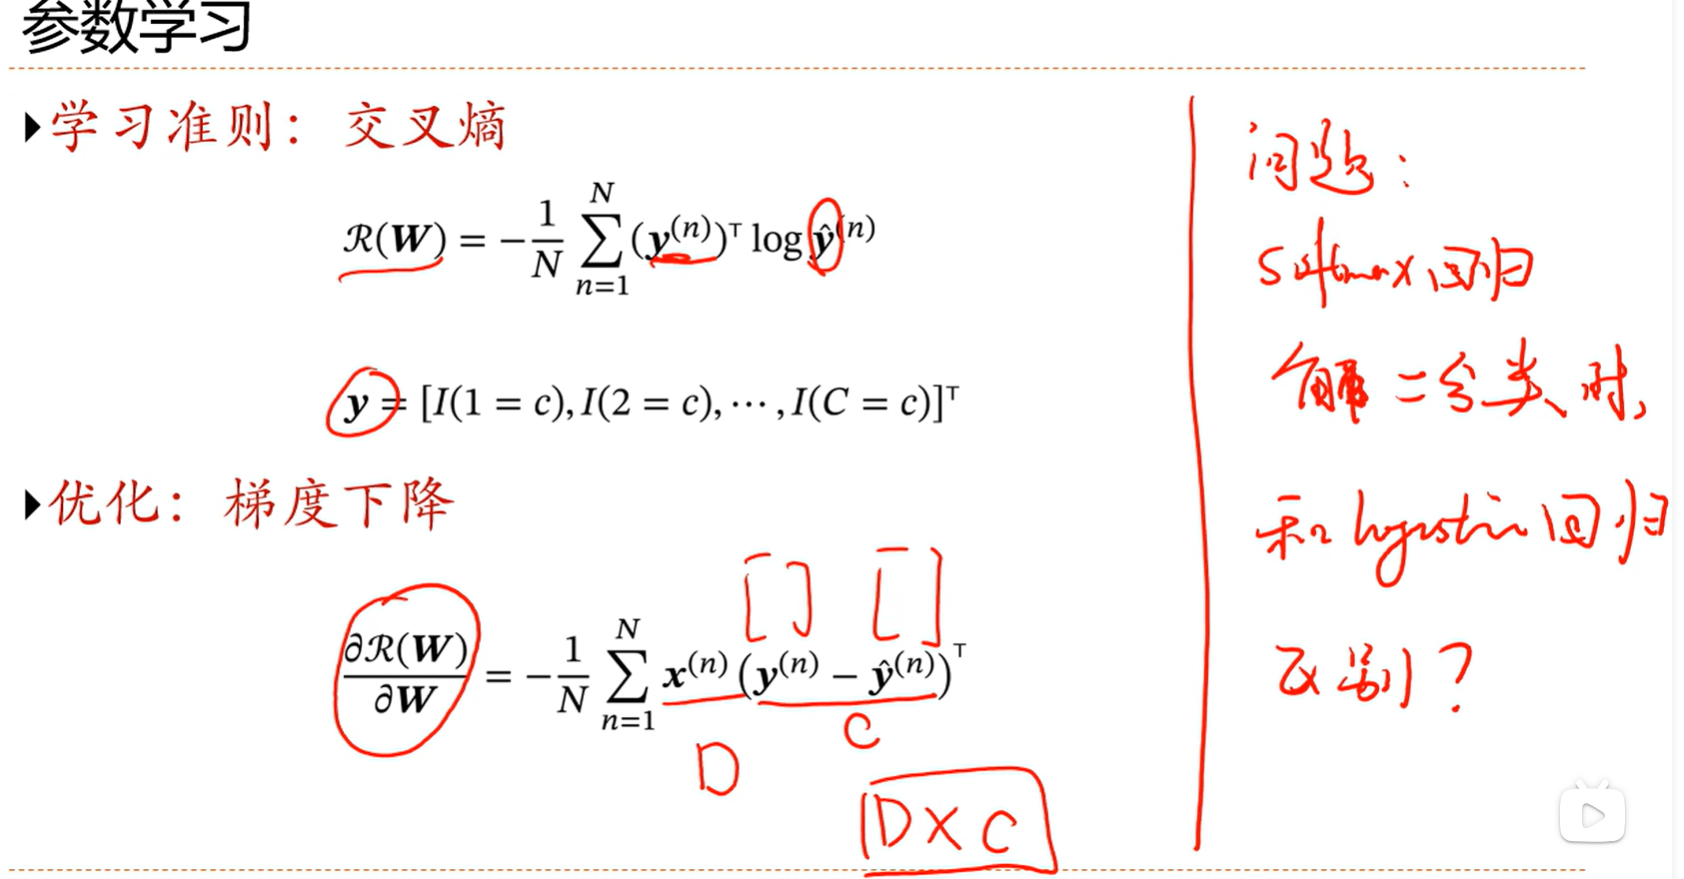 参数学习
学习准则：交叉熵
ℛ(W) = −1/N ∑_{n=1}^{N} (y^{(n)})^⊤ log ŷ^{(n)}
y = [I(1 = c), I(2 = c), ⋯ , I(C = c)]^⊤
优化：梯度下降
∂ℛ(W)/∂W = −1/N ∑_{n=1}^{N} x^{(n)} (y^{(n)} − ŷ^{(n)})^⊤
[ ] [ ]
D
C
D×C
问题：
Softmax回归
解二分类时，
和logistic回归
区别？